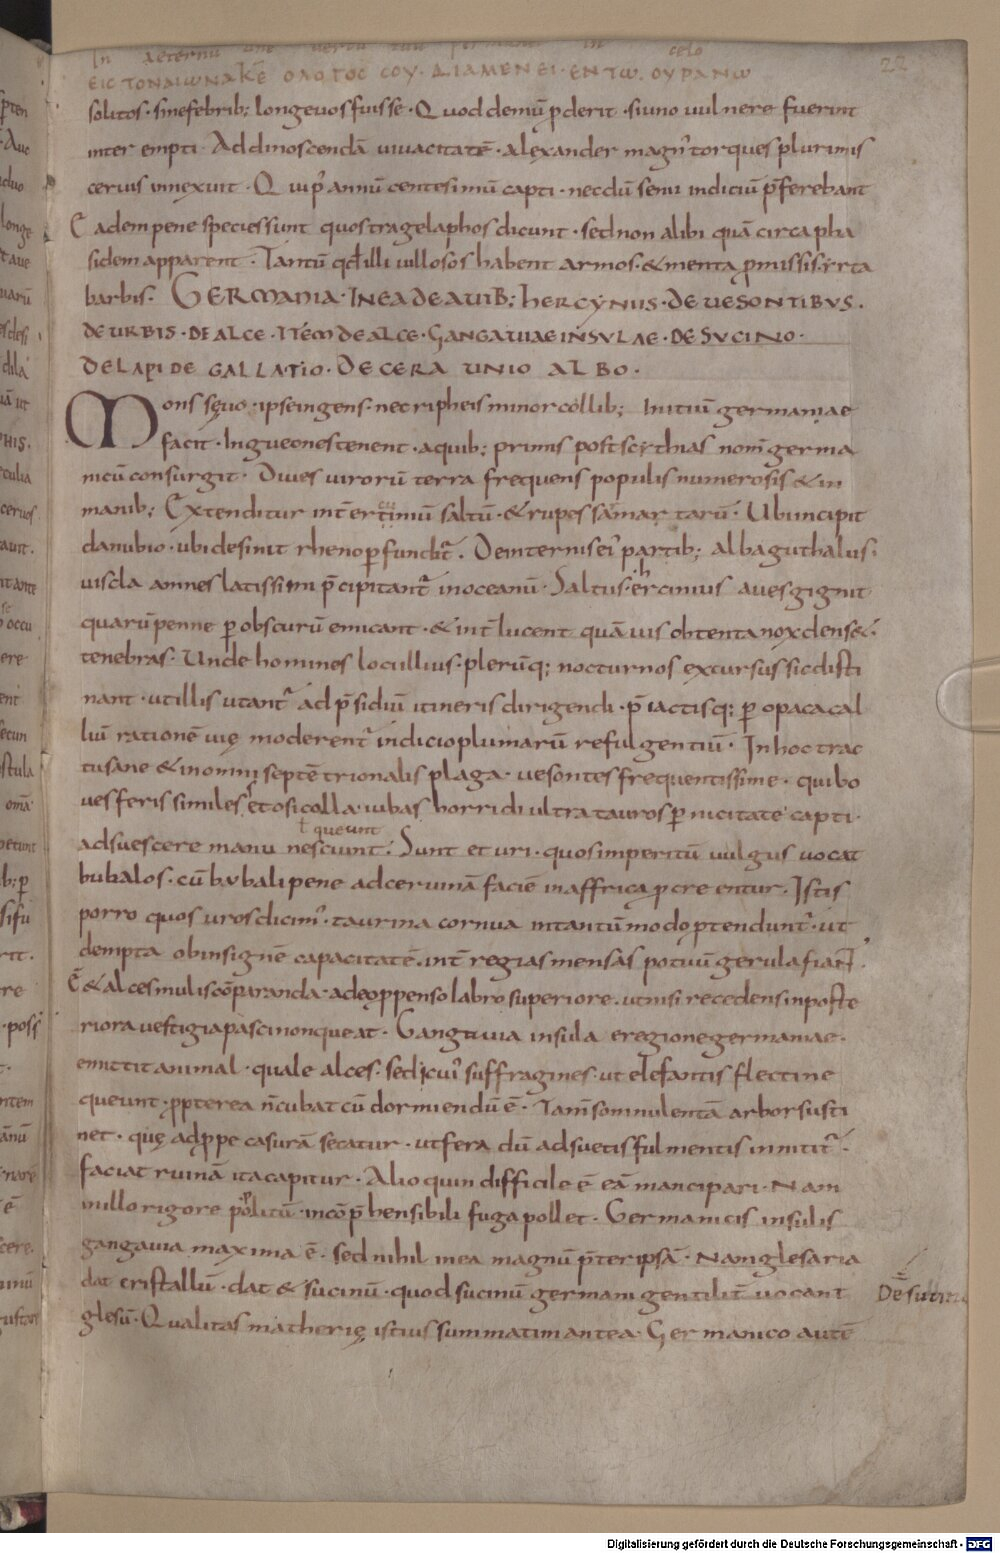 In aeternu dne verbu tuu permanet in celo
ΕΙC ΤΟΝ ΑΙωΝΑ Κ̅Ε Ο ΛΟΓΟC CΟΥ · ΔΙΑΜΕΝΕΙ · ΕΝ Τω · ΟΥΡΑΝω
22
solitos · sinefebrib; longevos fuisse · Quod demū ꝓderit · si uno vulnere fuerint
inter empti · Ad dinoscendā vivacitatē · alexander magnꝰ torques plurimis
cervis innexuit · Qui pꝰ annū centesimū capti · necdū senii indiciū p̄ferebant
Eadem pene species sunt quos tragelaphos dicunt · sed non alibi quā circa pha
sidem apparent · Tantū qđ illi villosos habent armos · & menta ꝓmissis yrta
barbis · GERMANIA · IN EA DE AVIB; HERCYNIIS · DE VESONTIBVS ·
DE URBIS · DE ALCE · ITĒM DE ALCE · GANGAVIAE INSVLAE · DE SVCINO ·
DE LAPIDE GALLATIO · DE CERAVNIO ALBO ·
Mons sęvo · ipse ingens · nec ripheis minor collib; Initiū germaniae
facit · Ingueones tenent · a quib; primis post scythias nom̄ germa
nicū consurgit · Dives virorū terra frequens populis numerosis & in
manib; Extenditur int̄ ertinniū saltū · & rupes sarmatarū · Ubi incipit
danubio · ubi desinit rheno ꝑfundit̄ · De internis eiꝰ partib; alba guthalus ·
viscla amnes latissimi p̄cipitant̄ in oceanū · Saltus · hercinius aves gignit
quarū penne ꝑ obscurū emicant · & int̄lucent quāvis obtenta nox denset
tenebras · Unde homines loci illius · plerūq; nocturnos excursus sic desti
nant · ut illis utant̄ ad p̄sidiū itineris dirigendi · p̄iactisq; ꝑ opaca cal
liū rationē vię moderent̄ indicio plumarū refulgentiū · In hoc trac
tu sane & in omni septētrionalis plaga · vesontes frequentissime · qui bo
ves feris similes setosi colla · iubas horridi ultra tauros ꝑnicitate capti ·
ł queunt
adsuescere manu nesciunt · Sunt et uri · quos imperitū vulgus vocat
bubalos · cū bubali pene ad cervinā faciē in affrica ꝓcreentur · Istis
porro quos uros dicimꝰ · taurina cornua in tantū modo ꝓtendunt̄ · ut
dempta ob insignē capacitatē · int̄ regias mensas potuū gerula fiant ·
Ē & alces mulis cōparanda · adeo ꝓpenso labro superiore · ut nisi recedens in poste
riora vestigia pasci non queat · Gangavia insula e regione germaniae ·
emittit animal · quale alces · sed icuiꝰ suffragines · ut elefantis flecti ne
queunt · ꝓpterea n̄ cubat cū dormiendū ē · Tam̄ somnulentā arbor susti
net · quę ad ꝓpe casurā secatur · ut fera dū adsuetis fulmentis innitit̄ ·
faciat ruinā ita capitur · Alioquin difficile ē eā mancipari · Nam
in illo rigore poplitū · incōp̄hensibili fuga pollet · Germanicis insulis
gangavia maxima ē · sed nihil in ea magnū p̄ter ipsā · Nam glesaria
dat cristallū · dat & sucinū · quod sucinū germani gentilit̄ vocant
De sucin
glesū · Qualitas matherię istius summatim antea · Germanico autē
Digitalisierung gefördert durch die Deutsche Forschungsgemeinschaft - DFG